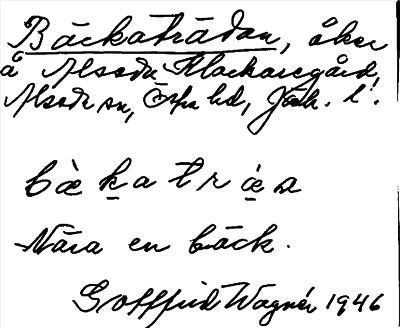 Bäckaträdan, åker
å Alseda Klockaregård,
Alseda sn, Östra hd, Jönk. l.
bä̀ḳa trä́ḍa
Nära en bäck.
Gottfrid Wagnér 1946